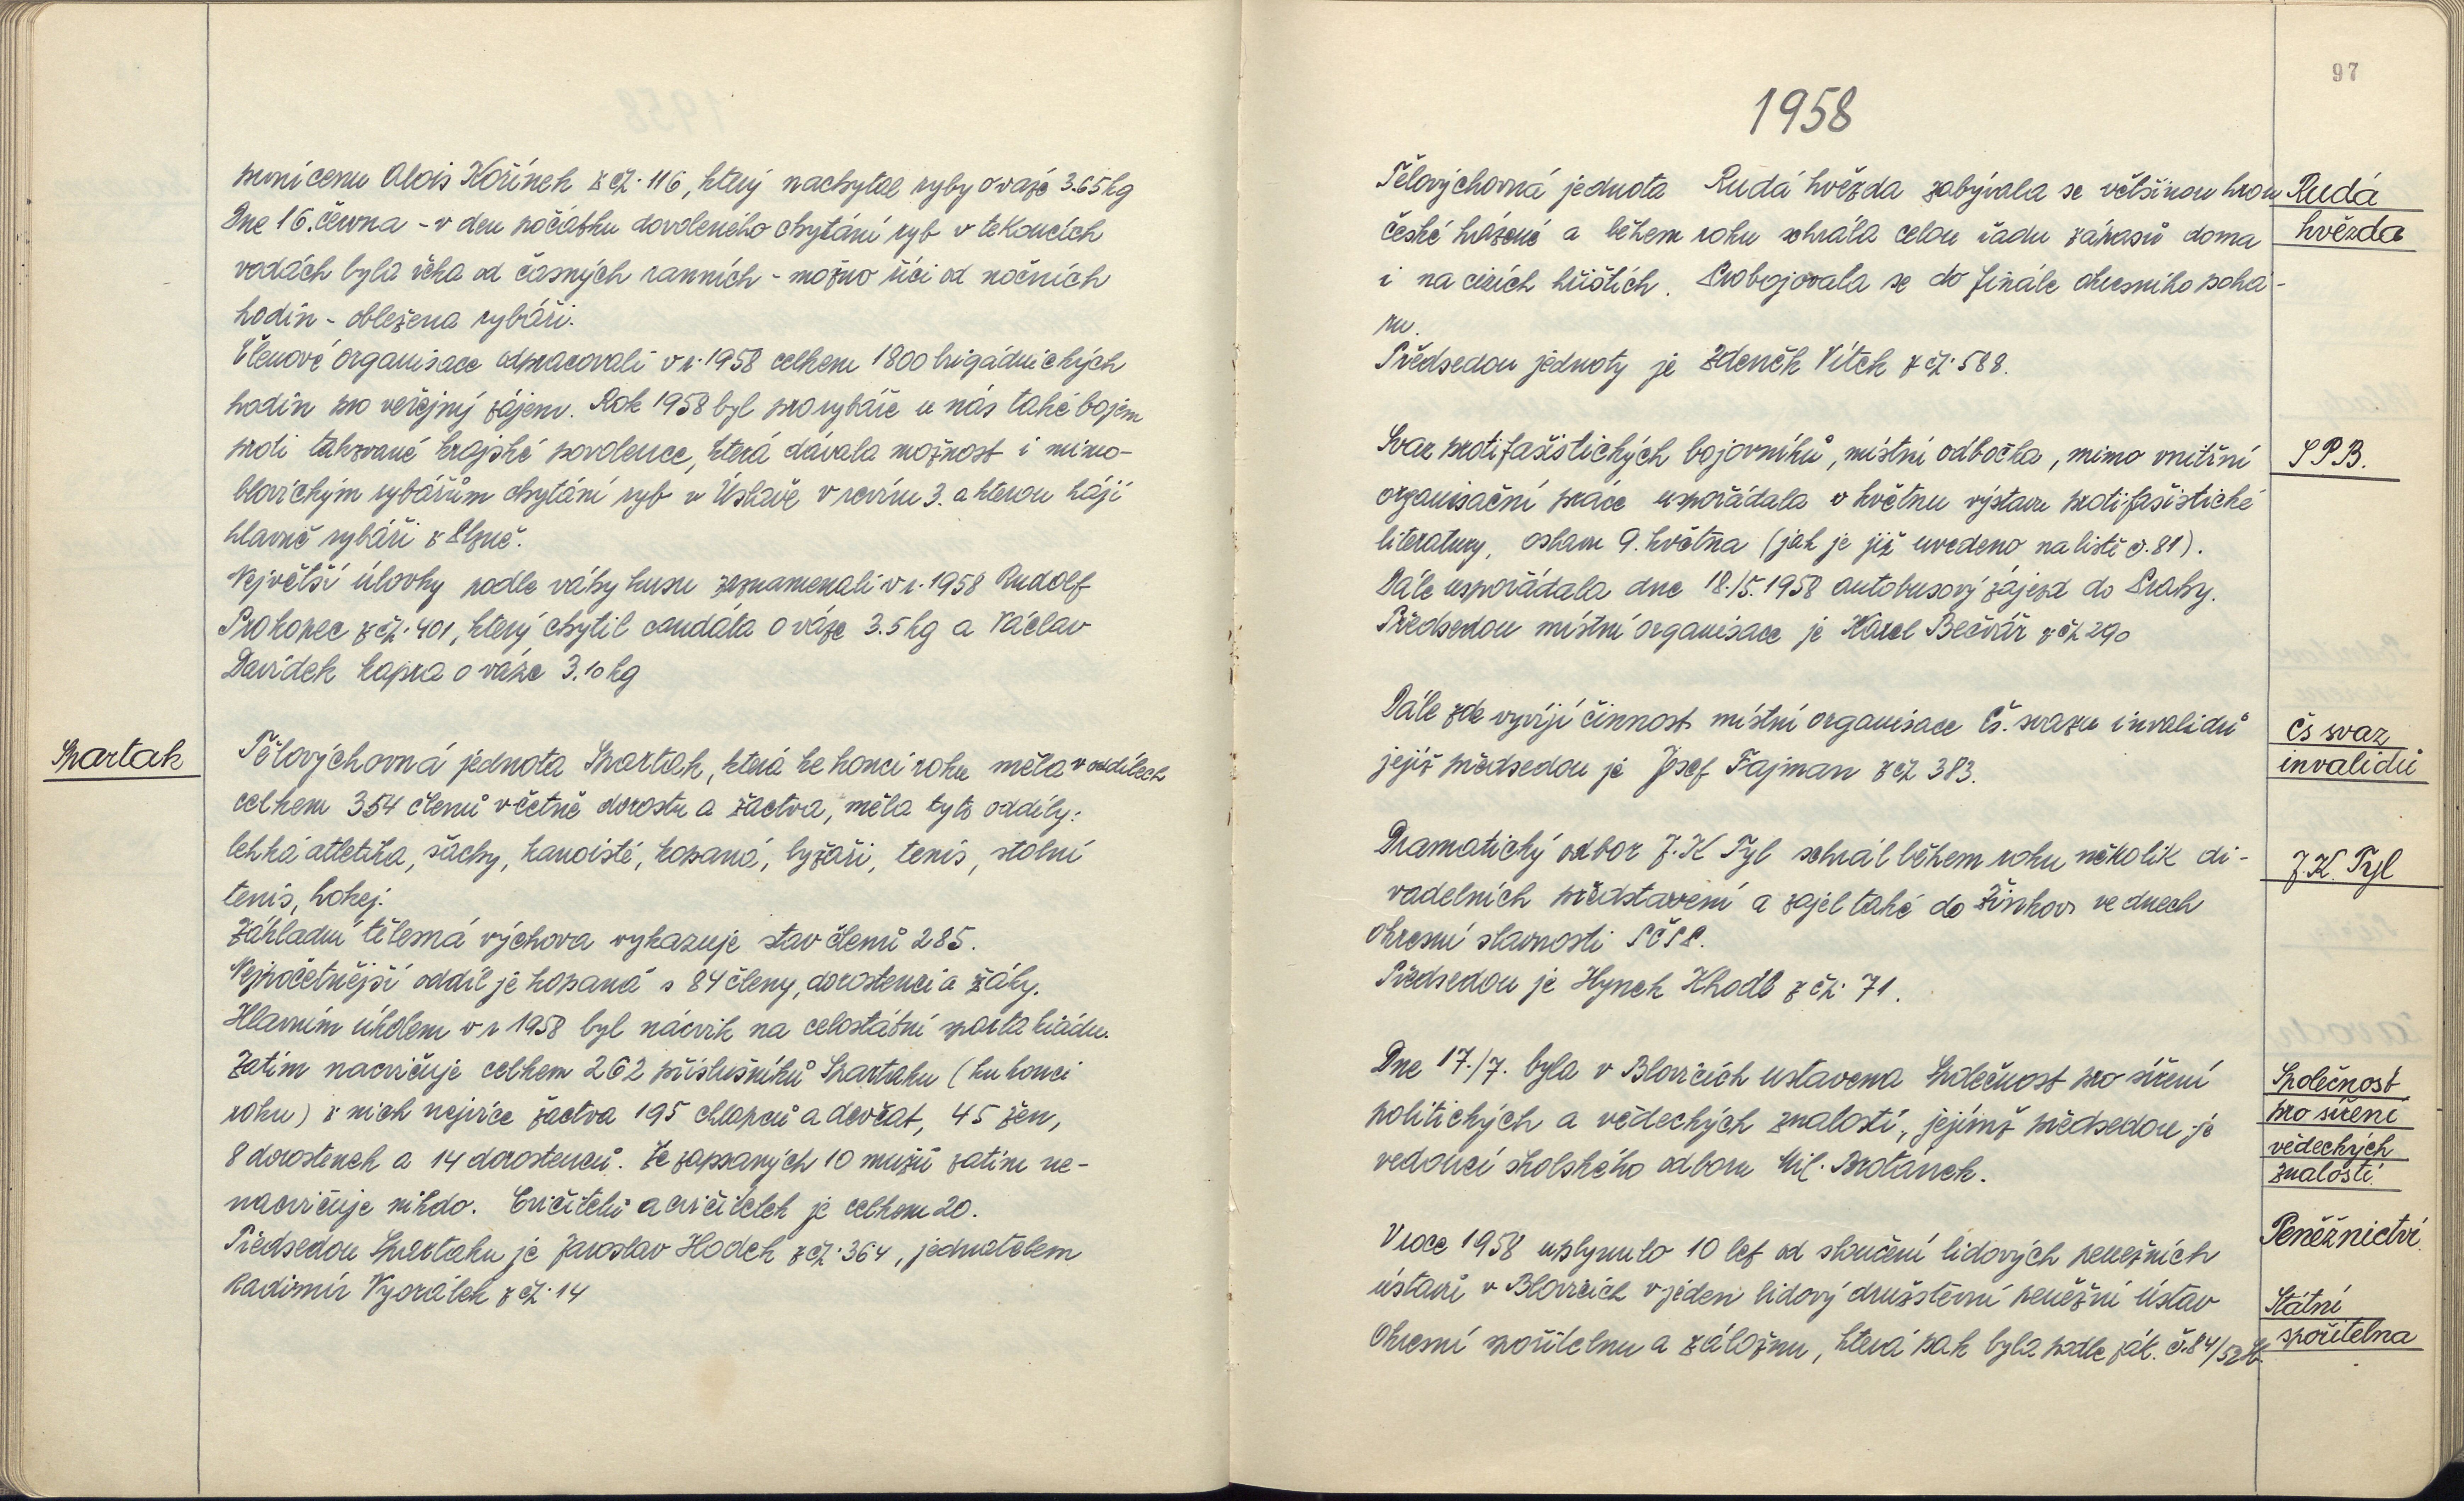 první cenu Alois Kořínek z čp. 116, který nachytal ryby o váze 3.65 kg
Dne 16. června - v den počátku dovoleného chytání ryb v tekoucích
vodách byla řeka od časných ranních - možno říci od nočních
hodin - obležena rybáři.
Členové organisace odpracovali v r. 1958 celkem 1800 brigádnických
hodin pro veřejný zájem. Rok 1958 byl pro rybáře u nás také bojem
proti takzvané krajské povolence, která dávala možnost i mimo-
blovickým rybářům chytání ryb v Úslavě v revíru 3. a kterou hájí
hlavně rybáři z Plzně.
Největší úlovky podle váhy kusu zaznamenali v r. 1958 Rudolf
Prokopec z čp. 401, který chytil candáta o váze 3.5 kg a Václav
Davídek kapra o váze 3.10 kg
Spartak
Tělovýchovná jednota Spartak, která ke konci roku měla v oddílech
celkem 354 členů včetně dorostu a žactva, měla tyto oddíly:
lehká atletika, šachy, kanoisté, kopaná, lyžaři, tenis, stolní
tenis, hokej.
Základní tělesná výchova vykazuje stav členů 285.
Nejpočetnější oddíl je kopaná s 84 členy, dorostenci a žáky.
Hlavním úkolem v r 1958 byl nácvik na celostátní spartakiádu.
Zatím nacvičuje celkem 262 příslušníků Spartaku (ku konci
roku) z nich nejvíce žactva 195 chlapců a děvčat, 45 žen,
8 dorostenek a 14 dorostenců. Ze zapsaných 10 mužů zatím ne-
nacvičuje nikdo. Cvičitelů a cvičitelek je celkem 20.
Předsedou Spartaku je Jaroslav Hodek z čp. 364, jednatelem
Radimír Vyorálek z čp. 14
97
1958
Tělovýchovná jednota Rudá hvězda zabývala se většinou hrou
české házené a během roku sehrála celou řadu zápasů doma
i na cizích hřištích. Probojovala se do finále okresního pohá-
ru.
Předsedou jednoty je Zdeněk Vítek z čp. 588.
Rudá
hvězda
Svaz protifašistických bojovníků, místní odbočka, mimo vnitřní
organisační práce uspořádala v květnu výstavu protifašistické
literatury, oslavu 9. května (jak je již uvedeno na listě č. 81).
Dále uspořádala dne 18./5. 1958 autobusový zájezd do Prahy.
Předsedou místní organisace je Karel Bečvář z čp 290
S P B.
Dále zde vyvíjí činnost místní organisace Čs. svazu invalidů
jejíž předsedou je Josef Fajman z čp 383.
Čs svaz
invalidů
Dramatický odbor J. K Tyl sehrál během roku několik di-
vadelních představení a zajel také do Žinkov ve dnech
okresní slavnosti SČSP.
Předsedou je Hynek Khodl z čp. 71.
J. K. Tyl
Dne 17./7. byla v Blovicích ustavena Společnost pro šíření
politických a vědeckých znalostí, jejímž předsedou je
vedoucí školského odboru Mil. Brotánek.
Společnost
pro šíření
vědeckých
znalostí.
V roce 1958 uplynulo 10 let od sloučení lidových peněžních
ústavů v Blovicích v jeden lidový družstevní peněžní ústav
Okresní spořitelnu a záložnu, která pak byla podle zák. č. 84/52 Sb.
Peněžnictví.
Státní
spořitelna